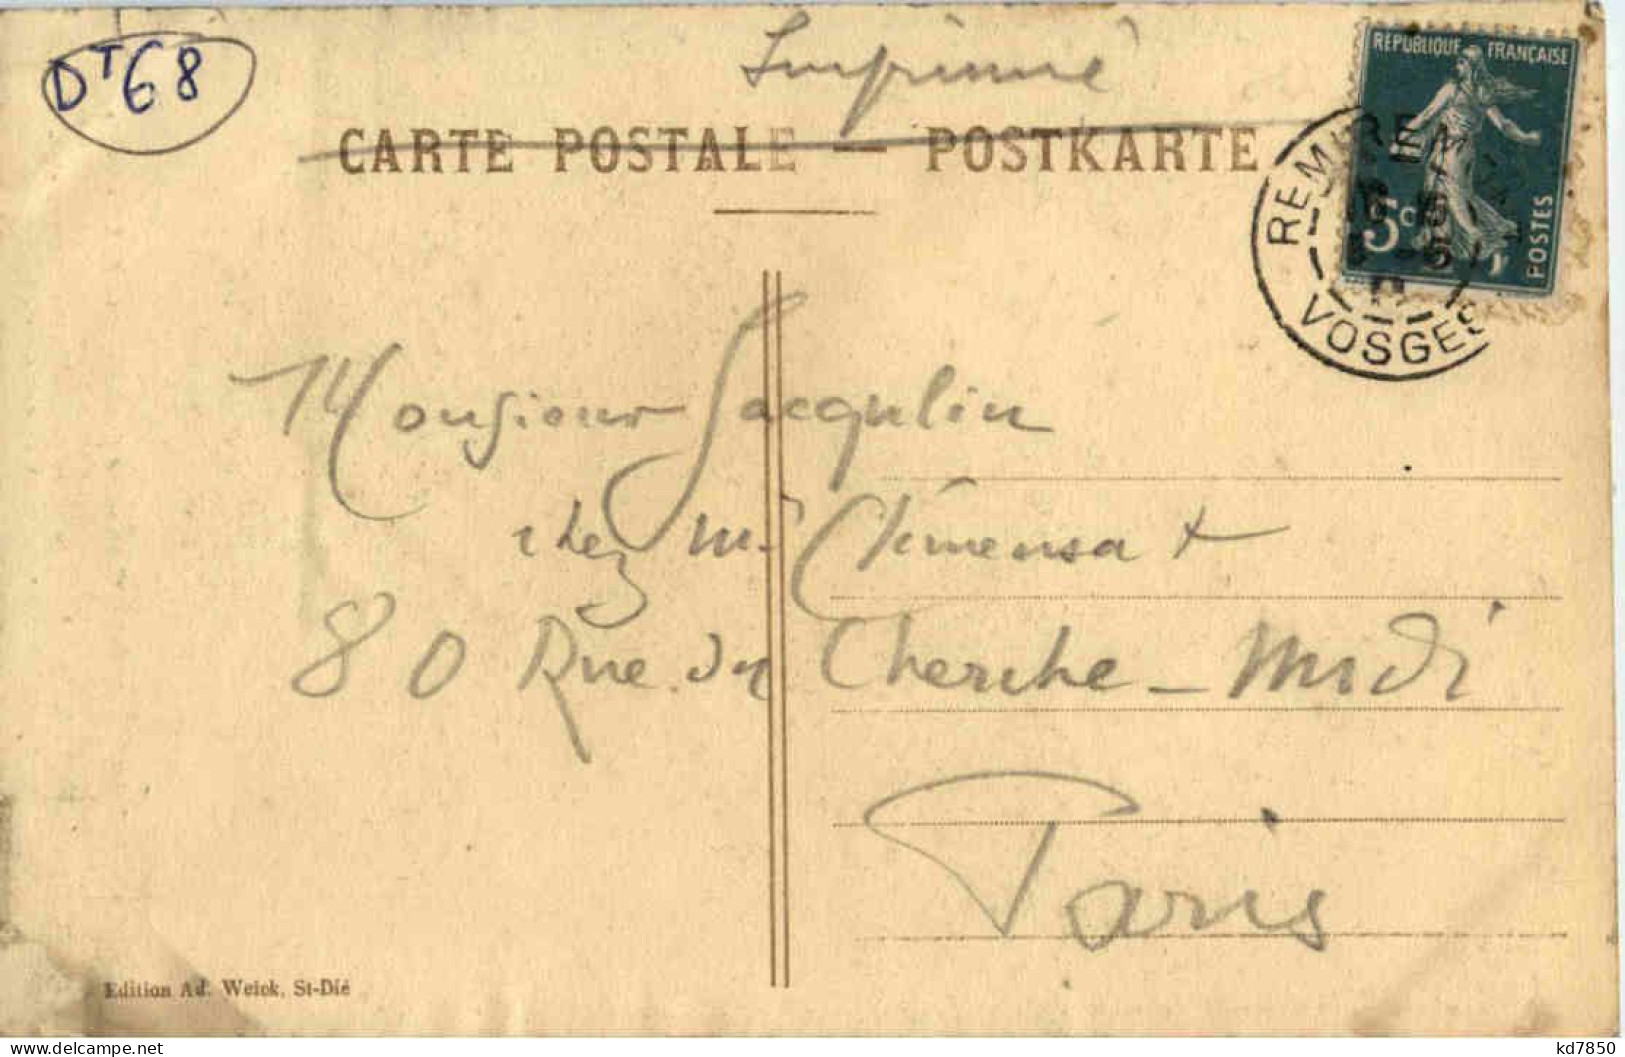 DT68
Imprimé
CARTE POSTALE — POSTKARTE
RÉPUBLIQUE FRANÇAISE
5c
POSTES
VOSGES
Monsieur Jacqulin
chez Mr Clémensat
80 Rue du Cherche-Midi
Paris
Edition Ad. Weick, St-Dié
www.delcampe.net
kd7850